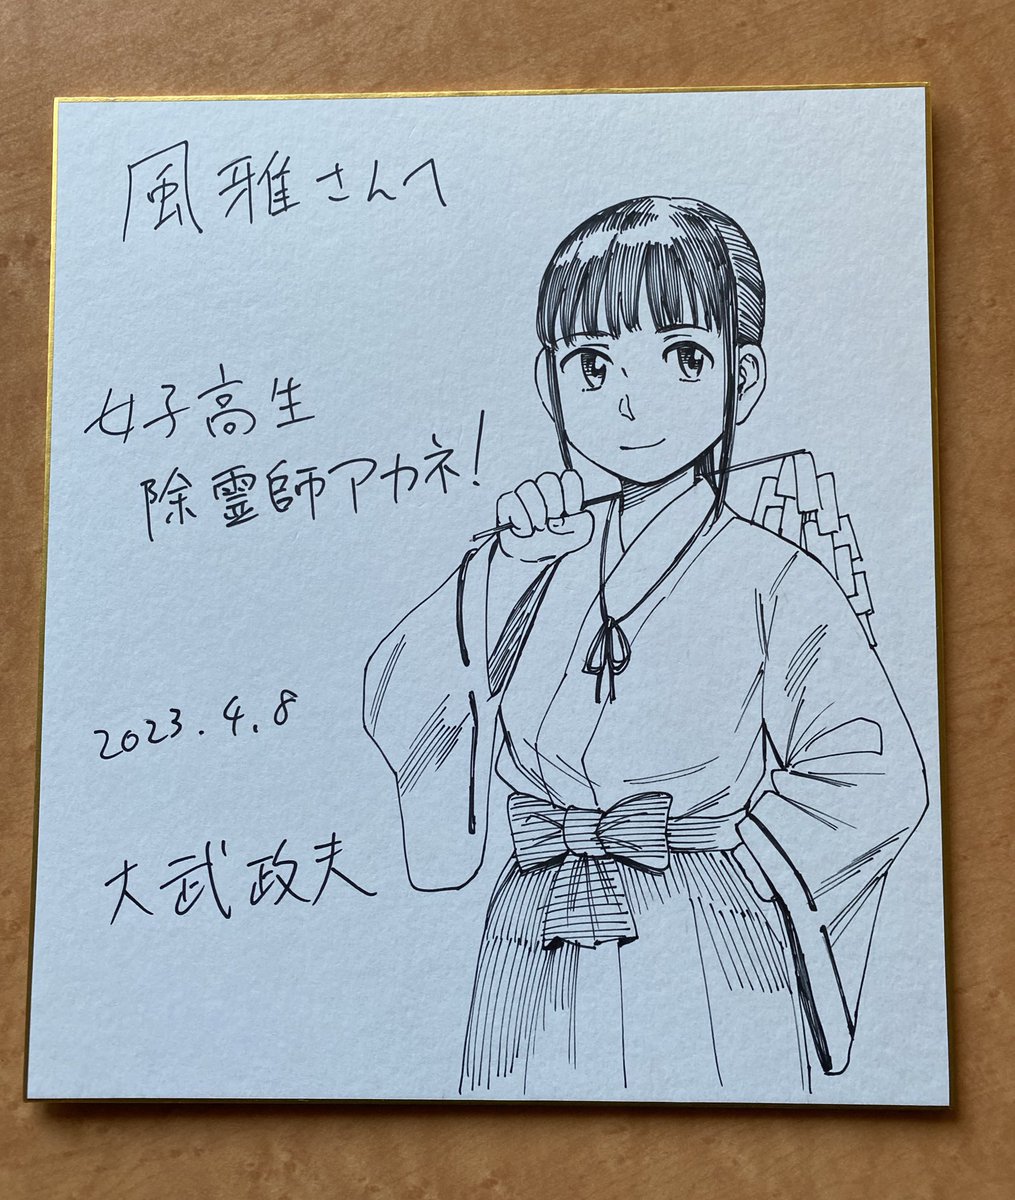 風雅さんへ
女子高生
除霊師アカネ!
2023.4.8
大武政夫